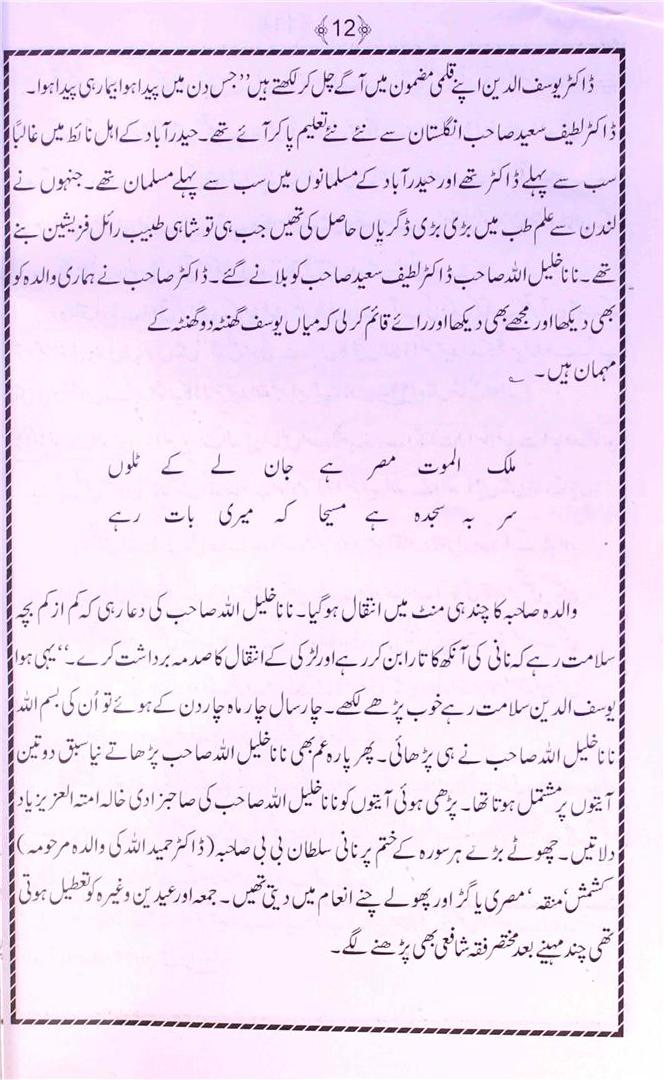 12
ڈاکٹر یوسف الدین اپنے قلمی مضمون میں آگے چل کر لکھتے ہیں ’’جس دن میں پیدا ہوا بیمار ہی پیدا ہوا۔
ڈاکٹر لطیف سعید صاحب انگلستان سے نئے نئے تعلیم پا کر آئے تھے۔ حیدرآباد کے اہل نائط میں غالباً
سب سے پہلے ڈاکٹر تھے اور حیدرآباد کے مسلمانوں میں سب سے پہلے مسلمان تھے۔ جنہوں نے
لندن سے علم طب میں بڑی بڑی ڈگریاں حاصل کی تھیں جب ہی تو شاہی طبیب رائل فزیشین بنے
تھے۔ نانا خلیل اللہ صاحب ڈاکٹر لطیف سعید صاحب کو بلانے گئے۔ ڈاکٹر صاحب نے ہماری والدہ کو
بھی دیکھا اور مجھے بھی دیکھا اور رائے قائم کر لی کہ میاں یوسف گھنٹہ دو گھنٹہ کے
مہمان ہیں۔ ؎
ملک الموت مصر ہے جان لے کے ٹلوں
سر بہ سجدہ ہے مسیحا کہ میری بات رہے
والدہ صاحبہ کا چند ہی منٹ میں انتقال ہو گیا۔ نانا خلیل اللہ صاحب کی دعا رہی کہ کم از کم بچہ
سلامت رہے کہ نانی کی آنکھ کا تارا بن کر رہے اور لڑکی کے انتقال کا صدمہ برداشت کرے۔‘‘ یہی ہوا
یوسف الدین سلامت رہے خوب پڑھے لکھے۔ چار سال چار ماہ چار دن کے ہوئے تو اُن کی بسم اللہ
نانا خلیل اللہ صاحب نے ہی پڑھائی۔ پھر پارہ عم بھی نانا خلیل اللہ صاحب پڑھاتے نیا سبق دو تین
آیتوں پر مشتمل ہوتا تھا۔ پڑھی ہوئی آیتوں کو نانا خلیل اللہ صاحب کی صاحبزادی خالہ امتہ العزیز یاد
دلاتیں۔ چھوٹے بڑے ہر سورہ کے ختم پر نانی سلطان بی بی صاحبہ (ڈاکٹر حمید اللہ کی والدہ مرحومہ)
کشمش‘ منقہ‘ مصری یا گڑ اور پھولے چنے انعام میں دیتی تھیں۔ جمعہ اور عیدین وغیرہ کو تعطیل ہوتی
تھی چند مہینے بعد مختصر فقہ شافعی بھی پڑھنے لگے۔